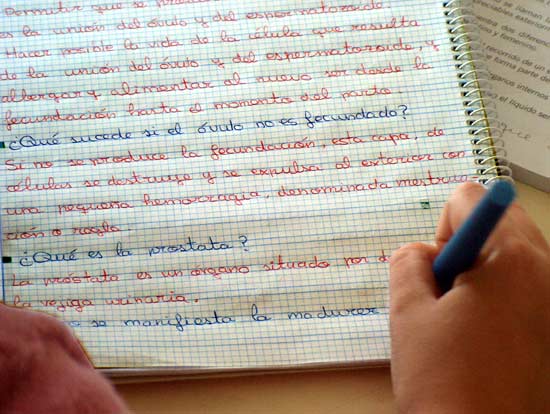 Permitir que se
es la unión del óvulo y del espermatozoide.
Hacer posible la vida de la célula que resulta
de la unión del óvulo y del espermatozoide, y
albergar y alimentar al nuevo ser desde la
fecundación hasta el momento del parto.
¿Qué sucede si el óvulo no es fecundado?
Si no se produce la fecundación, esta capa, de
células se destruye y se expulsa al exterior con
una pequeña hemorragia, denominada mestrua
ción o regla.
¿Qué es la prostata?
La próstata es un órgano situado por d
la vejiga urinaria.
se manifiesta la madurez
se llaman
exterior
entra dos
y femeninos
recorrido de un
forma parte de
órganos internos
el líquido se